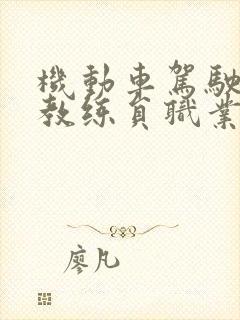 機動車駕駛
教练员職業
廖凡